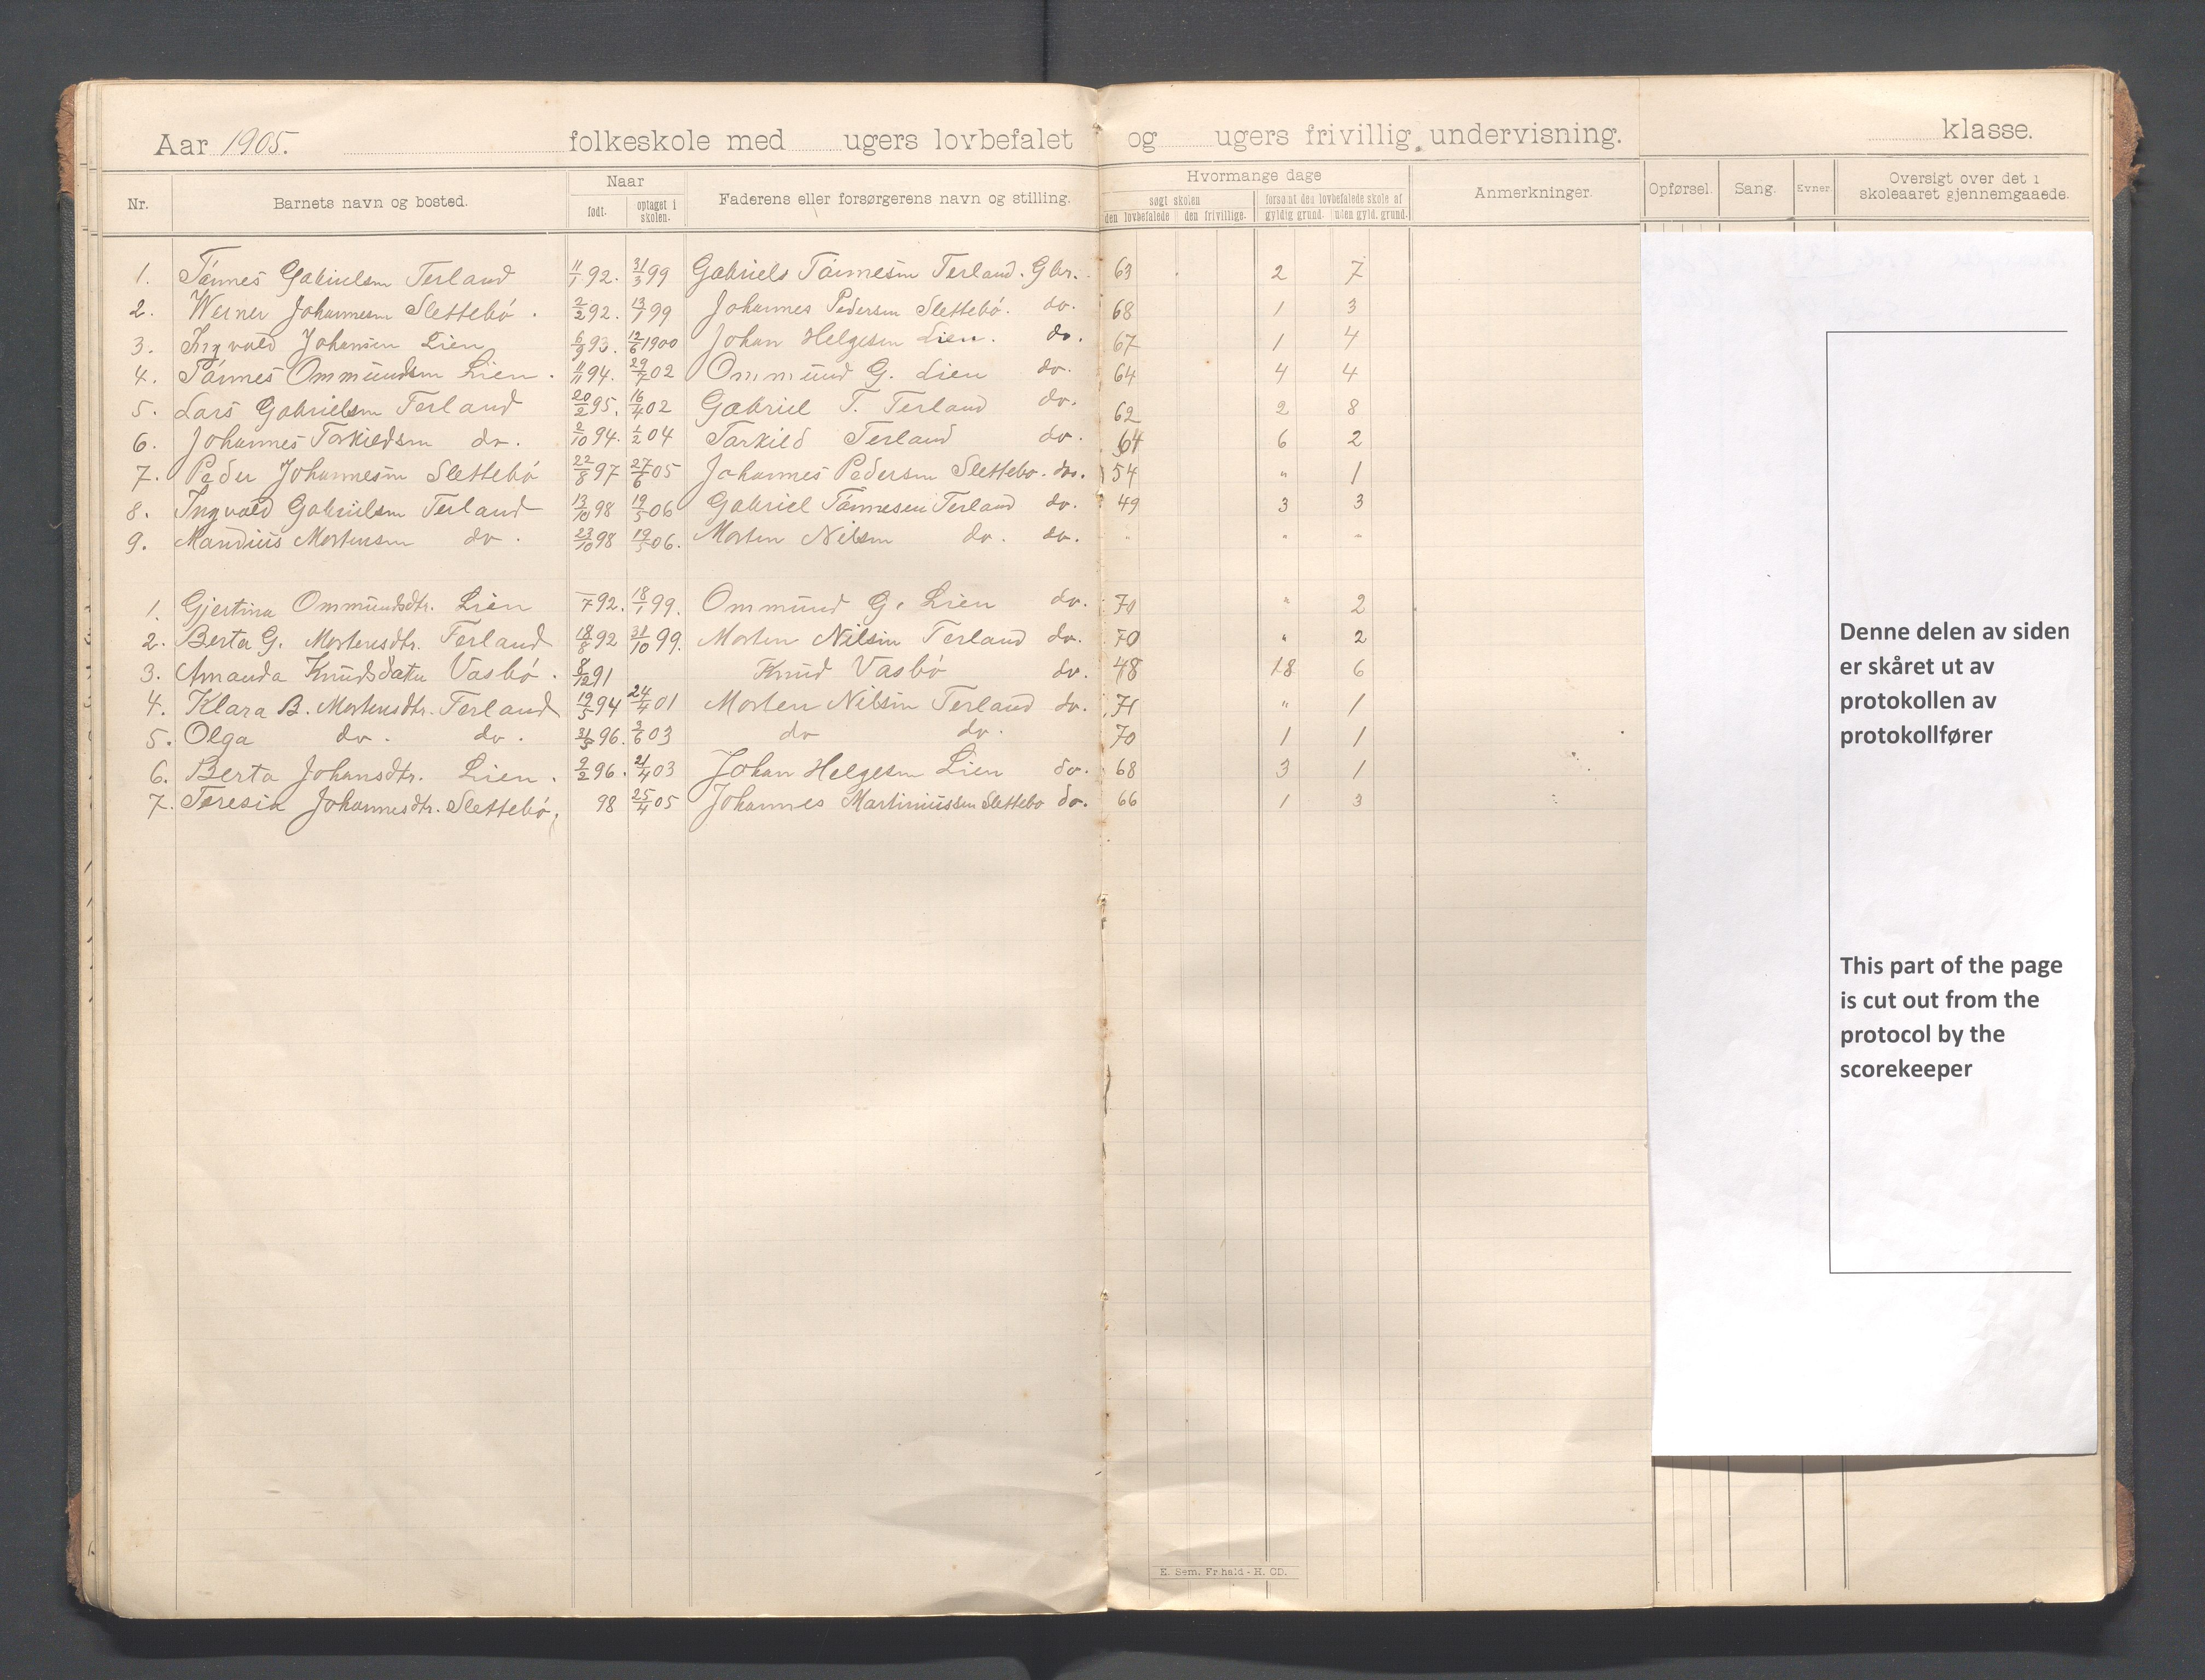 Aar 1905. folkeskole med ugers lovbefalet og ugers frivillig undervisning. klasse.
Nr. Barnets navn og bosted. Naar Faderens eller forsørgerens navn og stilling. Hvormange dage Anmerkninger. Opførsel. Sang. Evner. Oversigt over det i skoleaaret gjennemgaaede.
født. optaget i skolen. søgt skolen forsømt den lovbefalede skole af
den lovbefalede den frivillige. gyldig grund. uden gyld. grund.
1. Tønnes Gabrielsen Terland 11/1 92. 31/3 99 Gabriels Tønnesen Terland. Gbr. 63 2 7
2. Werner Johannesen Slettebø. 2/2 92. 13/1 99 Johannes Pedersen Slettebø. do. 68 1 3
3. Ingvald Johansen Lien 6/9 93. 12/6 1900 Johan Helgesen Lien. do. 67 1 4
4. Tønnes Ommundsen Lien. 11/11 94. 29/7 02 Ommund G. Lien do. 64 4 4
5. Lars Gabrielsen Terland 20/2 95. 16/4 02 Gabriel T. Terland do. 62 2 8
6. Johannes Torkildsen do. 2/10 94. 1/2 04 Tarkild Terland do. 64 6 2
7. Peder Johannesen Slettebø 22/8 97 27/6 05 Johannes Pedersen Slettebø. do. 54 " 1
8. Ingvald Gabrielsen Terland 13/10 98 19/5 06 Gabriel Tønnesen Terland do. 49 3 3
9. Mandius Mortensen do. 23/10 98 19/5 06. Morten Nilsen do. do. " " "
1. Gjertina Ommundsdtr. Lien 7 92. 18/1 99. Ommund G. Lien do. 70 " 2
2. Berta G. Mortensdtr. Terland 18/8 92 31/10 99. Morten Nilsen Terland do. 70 " 2
3. Amanda Knudsdatter Vasbø. 8/12 91 Knud Vasbø do. 48 18 6
4. Klara B. Mortensdtr. Terland 19/5 94 24/4 01 Morten Nilsen Terland do. 71 " 1
5. Olga do. do. 96. 3/6 03 do do. 70 1 1
6. Berta Johansdtr. Lien. 2/2 96. 21/4 03 Johan Helgesen Lien do. 68 3 1
7. Teresia Johannesdtr. Slettebø, 98 25/4 05 Johannes Martiniussen Slettebø do. 66 1 3
Denne delen av siden
er skåret ut av
protokollen av
protokollfører
This part of the page
is cut out from the
protocol by the
scorekeeper
E. Sem. Fr hald - H. CD.